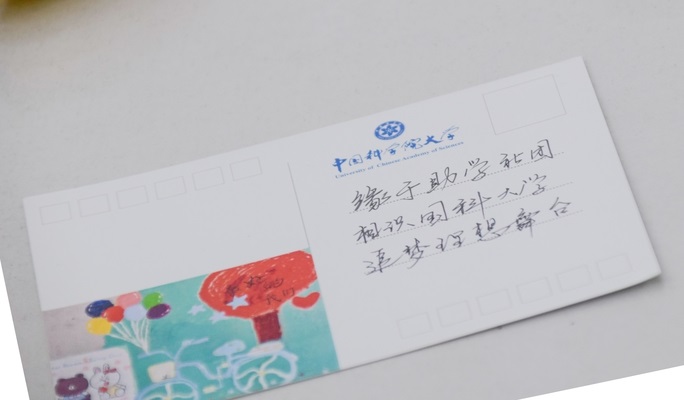 中国科学院大学
University of Chinese Academy of Sciences
缘于助学社团
相识国科大学
逐梦理想舞台
我们